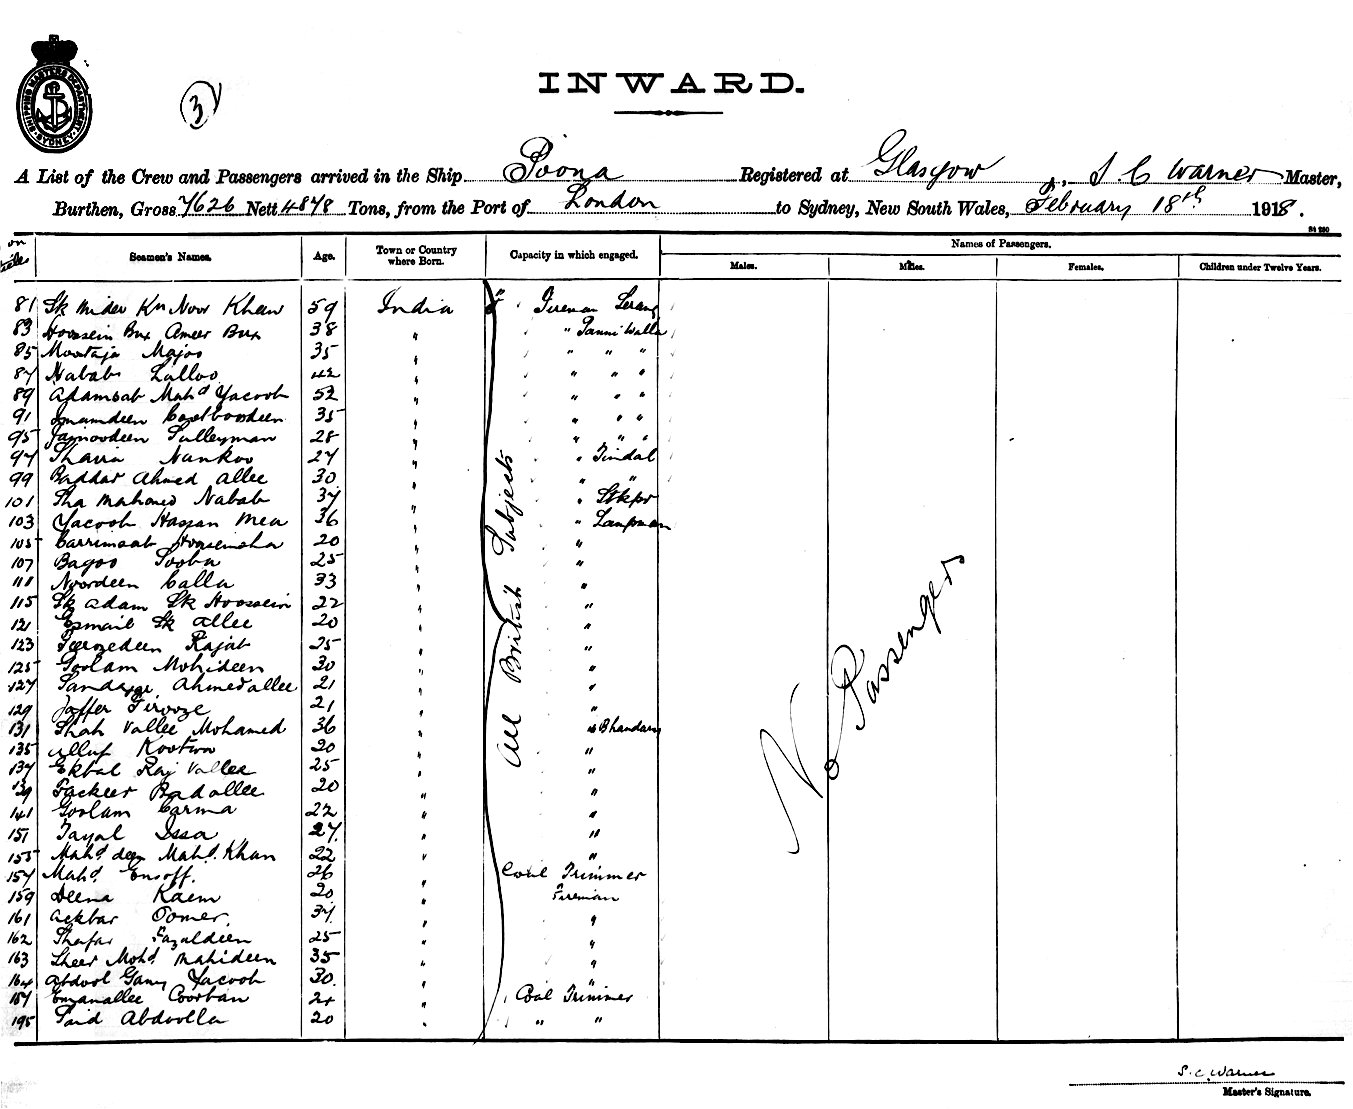 SHIPPING MASTERS DEPARTMENT SYDNEY
3
INWARD.
A List of the Crew and Passengers arrived in the Ship Poona Registered at Glasgow, S. C. Warner Master,
Burthen, Gross 7626 Nett 4878 Tons, from the Port of London to Sydney, New South Wales, February 18th 1918.
on
Seamen's Names. Age. Town or Country where Born. Capacity in which engaged. Names of Passengers.
Males. Females. Children under Twelve Years.
81 Sk Noor Khan 59 India " Fireman Serang
83 Hoossein Bux Ameer Bux 38 " " Panni Walla
85 Majoo 35 " " " "
87 Nabab Lalloo 42 " " " "
89 Adamsab Mahd Yacoob 52 " " " "
91 Imamdeen 35 " " " "
95 Jainoodeen Sulleyman 28 " " " "
97 Nankoo 27 " " Tindal
99 Baddar Ahmed Allee 30 " " "
101 Sha Mahomed Nabab 37 " " Stkpr
103 Yacoob Hassan Mea 36 " " Lampman
105 Carrimsab Hooseinsha 20 " "
107 Bagoo Sooba 25 " "
111 Noordeen Calla 33 " "
115 Sk Adam Sk Hoossein 22 " "
121 Esmail Sk Allee 20 " "
123 Rajab 25 " "
125 Goolam Mohideen 30 " "
127 Ahmedallee 21 " "
129 Jaffer Firooze 21 " "
131 Shah Vallee Mohamed 36 " " Bhandary
135 Kootwa 20 " "
137 Ekbal Raj Vallee 25 " "
139 Fackeer Badallee 20 " "
141 Goolam Carma 22 " "
151 Tayal Issa 27. " "
155 Mahd deen Mahd. Khan 22 " "
157 Mahd. Eusoff. 26 " Coal Trimmer
159 Deena Kaem 20 " Fireman
161 Ackbar Oomer. 37. " "
162 Shafar Fazaldeen 25 " "
163 Sheer Mohd. Mahideen 35 " "
164 Abdool Gany Yacoob 30. " "
187 Emanallee Coorban 24 " Coal Trimmer
195 Said Abdoolla 20 " " "
All British Subjects
No Passengers
S. C. Warner
Master's Signature.